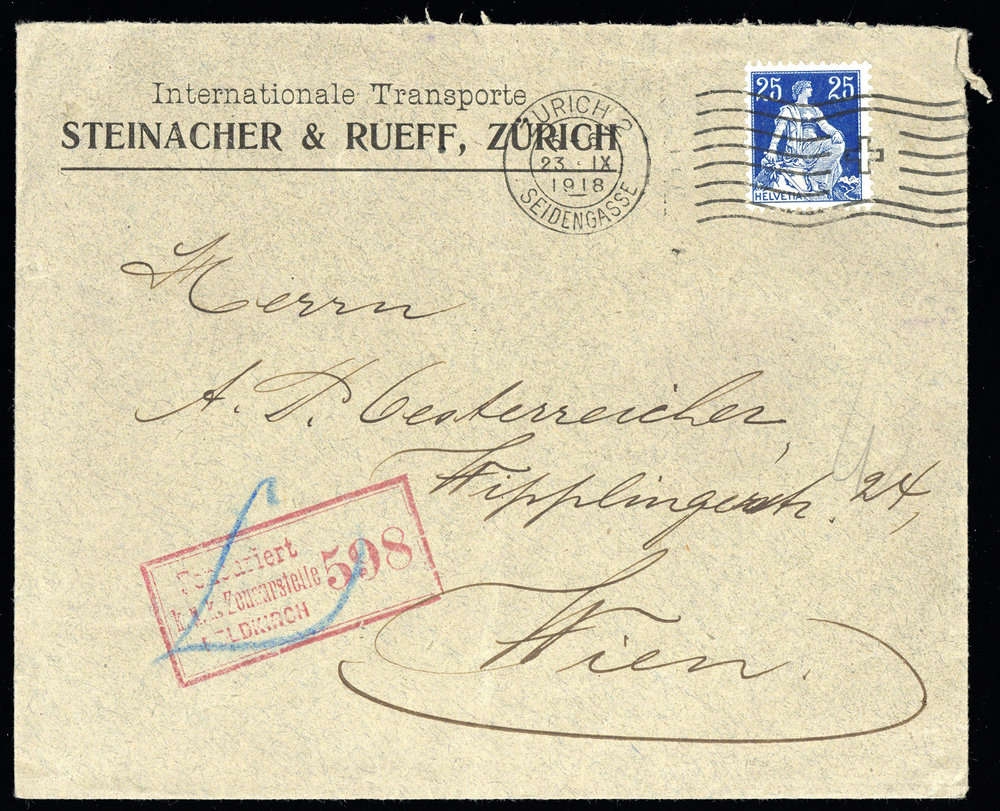 Internationale Transporte
STEINACHER & RUEFF, ZÜRICH
ZÜRICH 2
23. IX
1918
SEIDENGASSE
25 25
HELVETIA
Herrn
A. P. Oesterreicher,
Wipplingerstr. 24,
Wien.
Zensuriert
k.u.k. Zensurstelle
FELDKIRCH
598